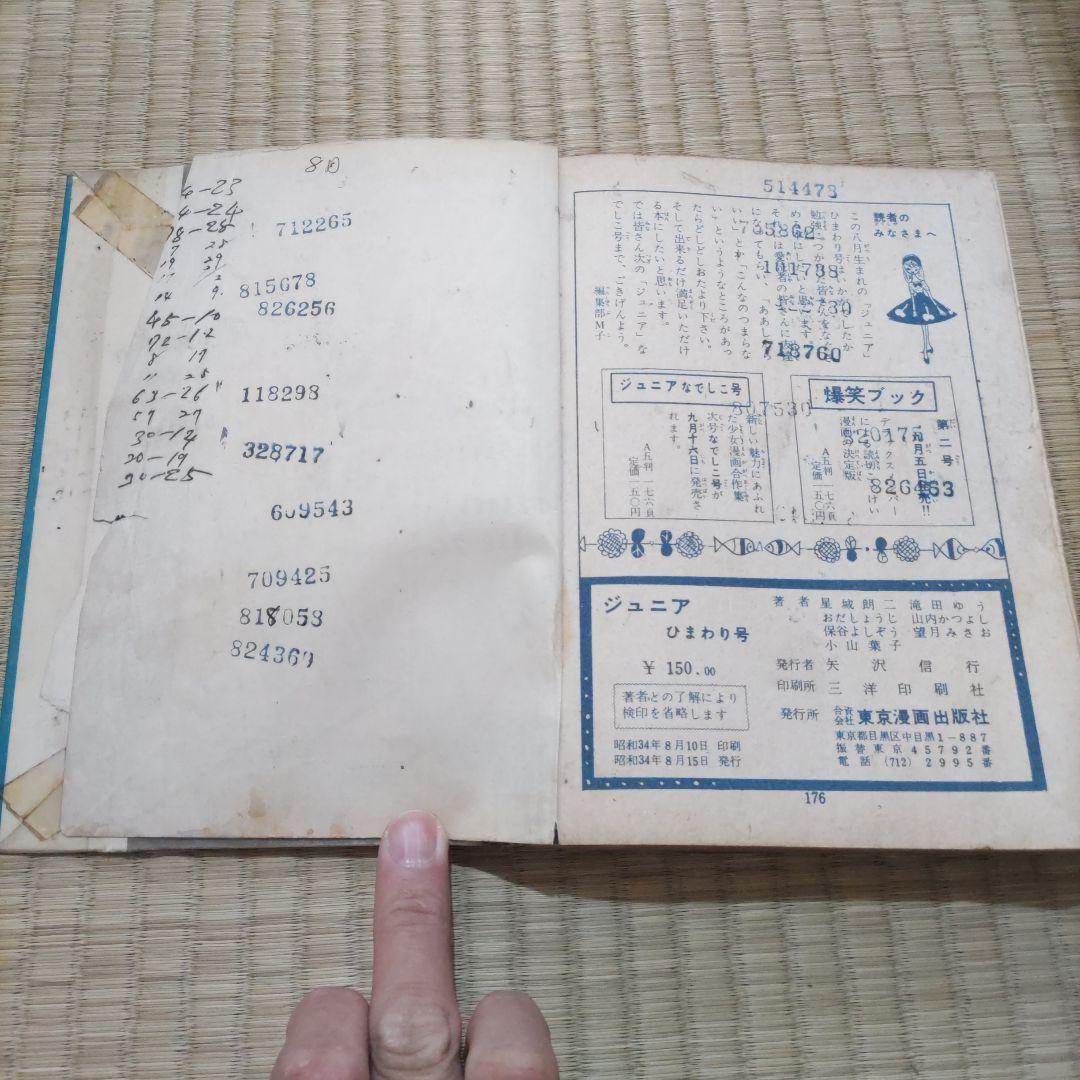 8月
4-23
4-24
712265
815678
826256
45-10
72-12
118298
63-26
57 27
328717
30-14
20-19
90-25
609543
709425
818053
824369
514473
読者の
みなさまへ
この八月生まれの『ジュニア』
になってもらい、「ああしろ
いい」とか「こんなのつまらな
い」というようなところがあっ
たらどしどしおたより下さい。
そして出来るだけ満足いただけ
る本にしたいと思います。
では皆さん次の『ジュニア』な
でしこ号まで、ごきげんよう。
編集部M子
35862
101738
718760
807530
826463
ジュニアなでしこ号
新しい魅力にあふれ
た少女漫画合作集
次号なでしこ号が
九月十六日に発売さ
れます。
A五判 一七六頁
定価 一五〇円
爆笑ブック
第二号
による読切
漫画の決定版
A五判 一七六頁
定価 一五〇円
ジュニア
ひまわり号
¥ 150.00
著者との了解により
検印を省略します
昭和34年8月10日 印刷
昭和34年8月15日 発行
著者 星城朗二 滝田ゆう
おだしょうじ 山内かつよし
保谷よしぞう 望月みさお
小山葉子
発行者 矢沢信行
印刷所 三洋印刷社
発行所 合資会社 東京漫画出版社
東京都目黒区中目黒1-887
振替東京45792番
電話 (712) 2995番
176